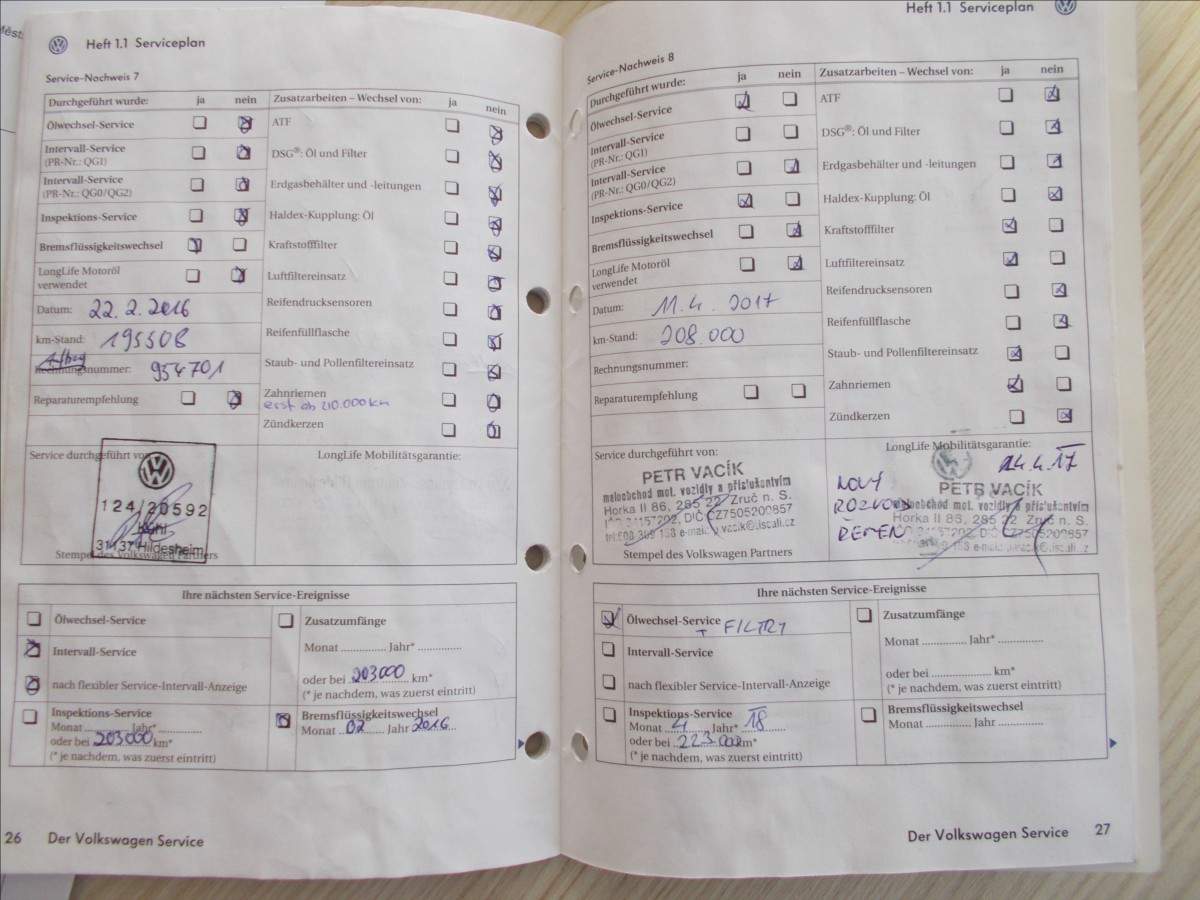 Měst
Heft 1.1 Serviceplan
Service-Nachweis 7
Durchgeführt wurde: ja nein
Ölwechsel-Service
Intervall-Service
(PR-Nr.: QG1)
Intervall-Service
(PR-Nr.: QG0/QG2)
Inspektions-Service
Bremsflüssigkeitswechsel
LongLife Motoröl
verwendet
Datum: 22.2.2016
km-Stand: 195508
Rechnungsnummer: 954701
Reparaturempfehlung
Zusatzarbeiten – Wechsel von: ja nein
ATF
DSG®: Öl und Filter
Erdgasbehälter und -leitungen
Haldex-Kupplung: Öl
Kraftstofffilter
Luftfiltereinsatz
Reifendrucksensoren
Reifenfüllflasche
Staub- und Pollenfiltereinsatz
Zahnriemen
erst ab 210.000 km
Zündkerzen
Service durchgeführt von:
124/20592
31137 Hildesheim
Stempel des Volkswagen Partners
LongLife Mobilitätsgarantie:
Ihre nächsten Service-Ereignisse
Ölwechsel-Service
Intervall-Service
nach flexibler Service-Intervall-Anzeige
Inspektions-Service
Monat ............ Jahr* ............
oder bei 203000 km*
(* je nachdem, was zuerst eintritt)
Zusatzumfänge
Monat ............ Jahr* ............
oder bei 203000 km*
(* je nachdem, was zuerst eintritt)
Bremsflüssigkeitswechsel
Monat 02 Jahr 2016
26 Der Volkswagen Service
Heft 1.1 Serviceplan
Service-Nachweis 8
Durchgeführt wurde: ja nein
Ölwechsel-Service
Intervall-Service
(PR-Nr.: QG1)
Intervall-Service
(PR-Nr.: QG0/QG2)
Inspektions-Service
Bremsflüssigkeitswechsel
LongLife Motoröl
verwendet
Datum: 11.4.2017
km-Stand: 208.000
Rechnungsnummer:
Reparaturempfehlung
Zusatzarbeiten – Wechsel von: ja nein
ATF
DSG®: Öl und Filter
Erdgasbehälter und -leitungen
Haldex-Kupplung: Öl
Kraftstofffilter
Luftfiltereinsatz
Reifendrucksensoren
Reifenfüllflasche
Staub- und Pollenfiltereinsatz
Zahnriemen
Zündkerzen
Service durchgeführt von:
PETR VACÍK
maloobchod mot. vozidly a příslušentvím
Horka II 86, 285 22 Zruč n. S.
DIČ CZ7505200857
vacik@tiscali.cz
Stempel des Volkswagen Partners
LongLife Mobilitätsgarantie:
NOVÝ
ROZVOD
ŘEMEN
PETR VACÍK
maloobchod mot. vozidly a příslušentvím
Horka II 86, 285 22 Zruč n. S.
Ihre nächsten Service-Ereignisse
Ölwechsel-Service
+ FILTRY
Intervall-Service
nach flexibler Service-Intervall-Anzeige
Inspektions-Service
Monat 4 Jahr* 18
oder bei 223.000 km*
(* je nachdem, was zuerst eintritt)
Zusatzumfänge
Monat ............ Jahr* ............
oder bei ................ km*
(* je nachdem, was zuerst eintritt)
Bremsflüssigkeitswechsel
Monat ............ Jahr ............
Der Volkswagen Service 27